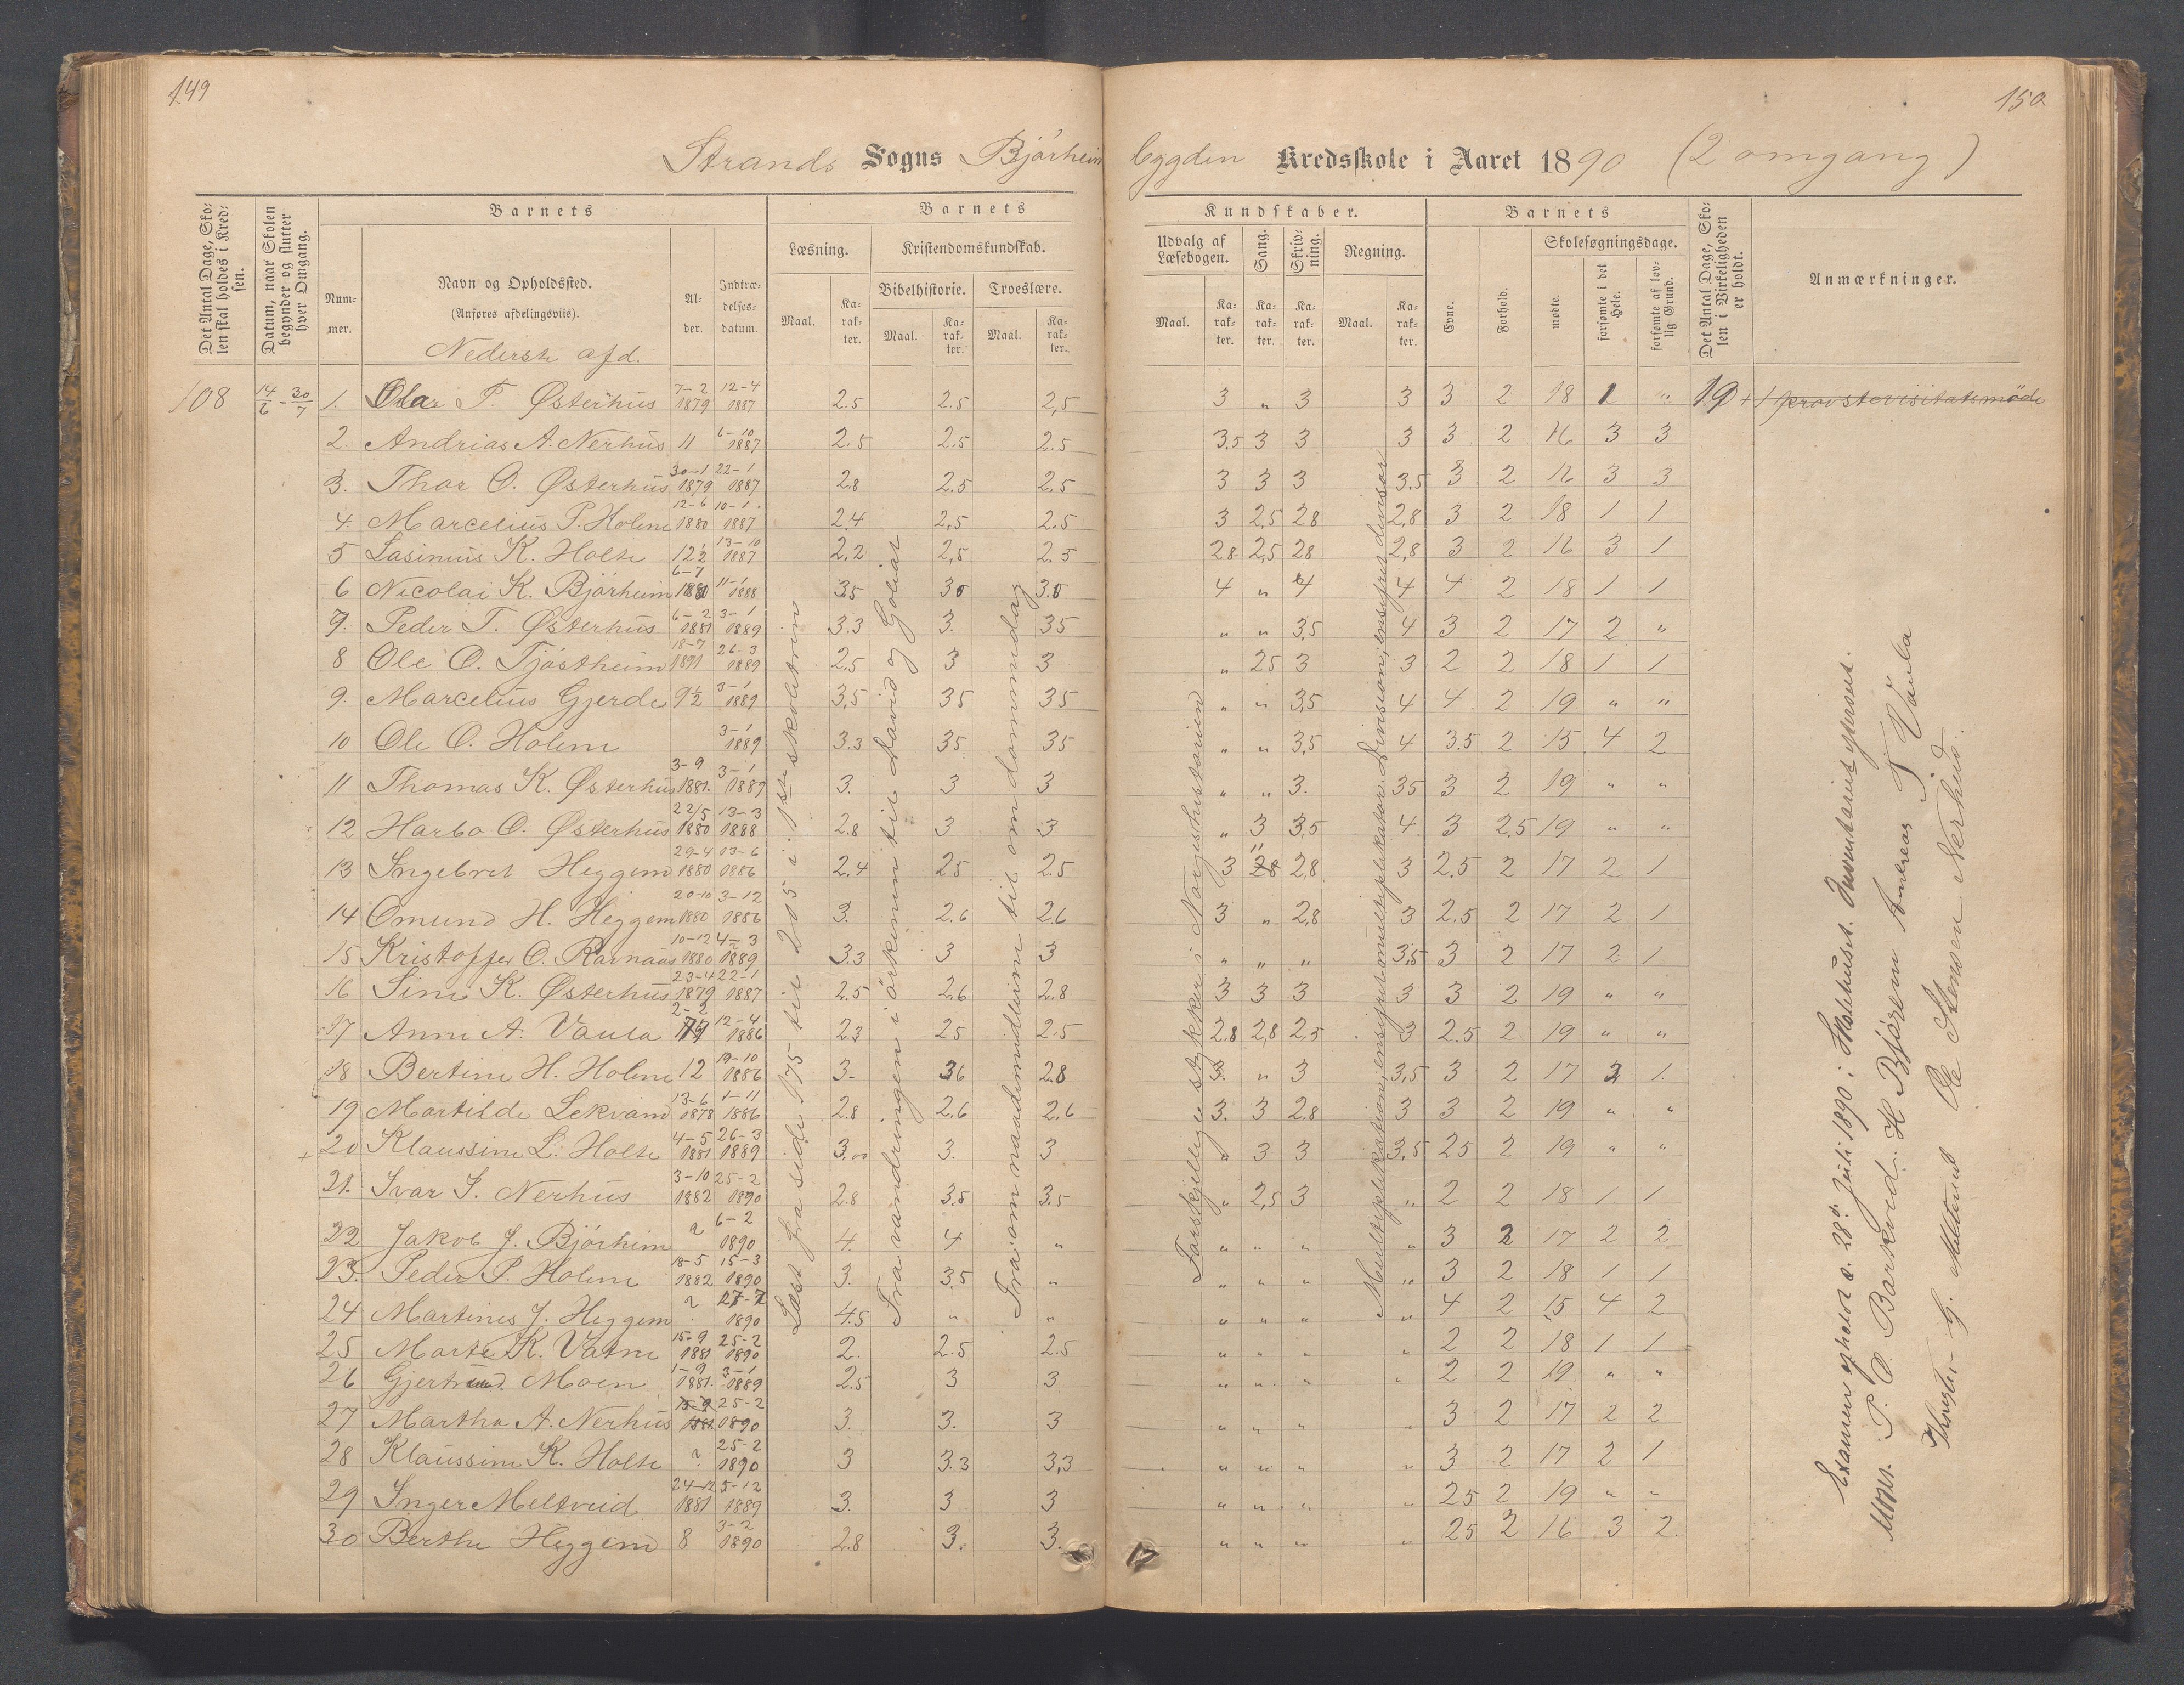 149
150
Strands Sogns Bjørheim bygden Kredsskole i Aaret 1890 (2 omgang)
Det Antal Dage, Skolen skal holdes i Kredsen.
Datum, naar Skolen begynder og slutter hver Omgang.
Barnets
Nummer.
Navn og Opholdssted.
(Anføres afdelingsviis).
Nederste afd.
Alder.
Indtrædelsesdatum.
Barnets
Læsning.
Kristendomskundskab.
Bibelhistorie. Troeslære.
Maal. Karakter. Maal. Karakter. Maal. Karakter.
Kundskaber.
Udvalg af Læsebogen. Sang. Skrivning. Regning.
Maal. Karakter. Karakter. Karakter. Maal. Karakter.
Barnets
Evne. Forhold.
Skolesøgningsdage.
mødte. forsømte i det Hele. forsømte af lovlig Grund.
Det Antal Dage, Skolen i Virkeligheden er holdt.
Anmærkninger.
108 14/6 - 30/7 1. Olar T. Østerhus 7-2 1879 12-4 1887 2.5 2.5 2,5 3 " 3 3 3 2 18 1 " 19 + 1 provstevisitatsmøde
2. Andrias A. Nerhus 11 6-10 1887 2.5 2.5 2.5 3.5 3 3 3 3 2 16 3 3
3. Thor O. Østerhus 30-1 1879 22-1 1887 2.8 2.5 2.5 3 3 3 3.5 3 2 16 3 3
4. Marcelius P. Holm 12-6 1880 10-1 1887 2.4 2,5 2.5 3 2,5 28 2,8 3 2 18 1 1
5 Lasimus K. Holte 12½ 13-10 1887 2.2 2,5 2.5 28 2,5 28 2,8 3 2 16 3 1
6 Nicolai K. Bjørheim 6-7 1880 11-1 1888 35 30 3.0 4 " 4 4 4 2 18 1 1
7. Peder T. Østerhus 6-2 1881 3-1 1889 3.3 3. 35 " " 3,5 4 3 2 17 2 "
8 Ole O. Tjøstheim 18-7 1891 26-3 1889 2.5 3 3 " 25 3 3 2 2 18 1 1
9. Marcelius Gjerde 9½ 3-1 1889 3,5 35 35 " " 3,5 4 4 2 19 " "
10 Ole O. Holm 3-1 1889 3.3 35 35 " " 3,5 4 3.5 2 15 4 2
11 Thomas K. Østerhus 3-9 1881. 3-1 1889 3. 3 3 " " 3. 35 3 2 19 " "
12 Harbo O. Østerhus 22/5 1880 13-3 1888 2.8 3 3 " 3 3,5 4 3 2.5 19 " "
13 Ingebret Heggem 29-4 1880 13-6 1886 2.4 25 2.5 3 28 2,8 3 2.5 2 17 2 1
14 Omund H. Heggem 20-10 1880 3-12 1886 3. 2.6 2.6 3 " 2,8 3 2.5 2 17 2 1
15 Kristoffer O. Ravnaas 10-12 1880 4-3 1889 3.3 3 3 " " " 3,5 3 2 17 2 1
16 Sine K. Østerhus 23-4 1879 22-1 1887 2.5 2.6 2.8 3 3 3 3 3 2 19 " "
17 Anne A. Vaula 2-2 12-4 1886 2.3 25 2.5 2.8 2,8 2,5 3 2.5 2 19 " "
18 Bertine H. Holm 12 19-10 1886 3- 36 2.8 3. " 3 3,5 3 2 17 2 1.
19 Martilde Lekvam 13-6 1878 1-11 1886 2.8 2.6 2.6 3. 3 2.8 3 3 2 19 " "
20 Klaussine L. Holte 4-5 1881 26-3 1889 3,00 3. 3 " 3 3 3,5 25 2 19 " "
21. Ivar I. Nerhus 3-10 1882 25-2 1890 2.8 3.5 3.5 " 2,5 3 " 2 2 18 1 1
22 Jakob J. Bjørheim ? 6-2 1890 4. 4 " " " " " 3 2 17 2 2
23. Peder P. Holm 18-5 1882 15-3 1890 3. 3,5 " " " " " 3 2 18 1 1
24 Martines J. Heggem ? 27-7 1890 4.5 " " " " " " 4 2 15 4 2
25 Marte K. Vatne 15-9 1881 25-2 1890 2. 2.5 2.5 " " " " 2 2 18 1 1
26 Gjertrud Moen 1-9 1881. 3-1 1889 2.5 3 3 " " " " 2 2 19 " "
27 Martha A. Nerhus 15-9 1881 25-2 1890 3. 3. 3 " " " " 3 2 17 2 2
28 Klaussine K. Holte ? 25-2 1890 3 3.3 3,3 " " " " 3 2 17 2 1
29 Inger Meltveid 24-12 1881 5-12 1889 3. 3 3 " " " " 25 2 19 " "
30 Berthe Heggem 8 3-2 1890 2.8 3. 3. " " " " 25 2 16 3 2.
Læst fra side 175 til 205 i 1ste skoletrin
Fra vandringen i ørkenen til David og Goliat
Fra om naademidlerne til om dommedag
Forskjellige stykker i Norgeshistorien
Multiplikation, ensifret multiplikator. Division, ensifret divisor
Examen afholdt d. 28de Juli 1890 i Holehuset. Inventariet synt.
Mons. P. O. Barkved. H Bjøren Andreas T Vaula
G. Meltveid Ole Stensen Nerhus.
17